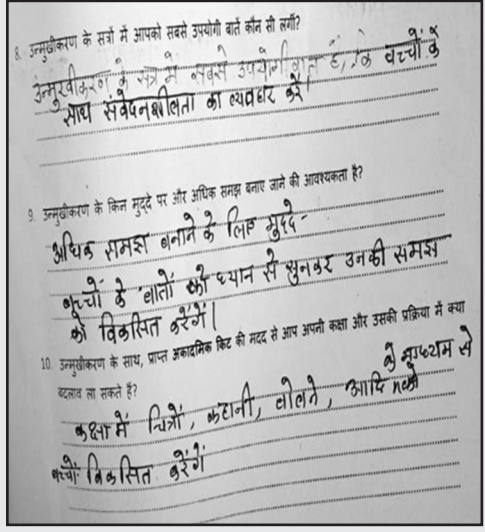 8. उन्मुखीकरण के सत्रों में आपको सबसे उपयोगी बातें कौन सी लगीं?
उन्मुखीकरण के सत्र में सबसे उपयोगी बात है, कि बच्चों के
साथ संवेदनशीलता का व्यवहार करें।
9. उन्मुखीकरण के किन मुद्दे पर और अधिक समझ बनाए जाने की आवश्यकता है?
अधिक समझ बनाने के लिए मुद्दे -
बच्चों के बातों को ध्यान से सुनकर उनकी समझ
को विकसित करेंगें।
10. उन्मुखीकरण के साथ, प्राप्त अकादमिक किट की मदद से आप अपनी कक्षा और उसकी प्रक्रिया में क्या
बदलाव ला सकते हैं?
के माध्यम से
कक्षा में चित्रों, कहानी, बोलने, आदि
बच्चों विकसित करेंगें